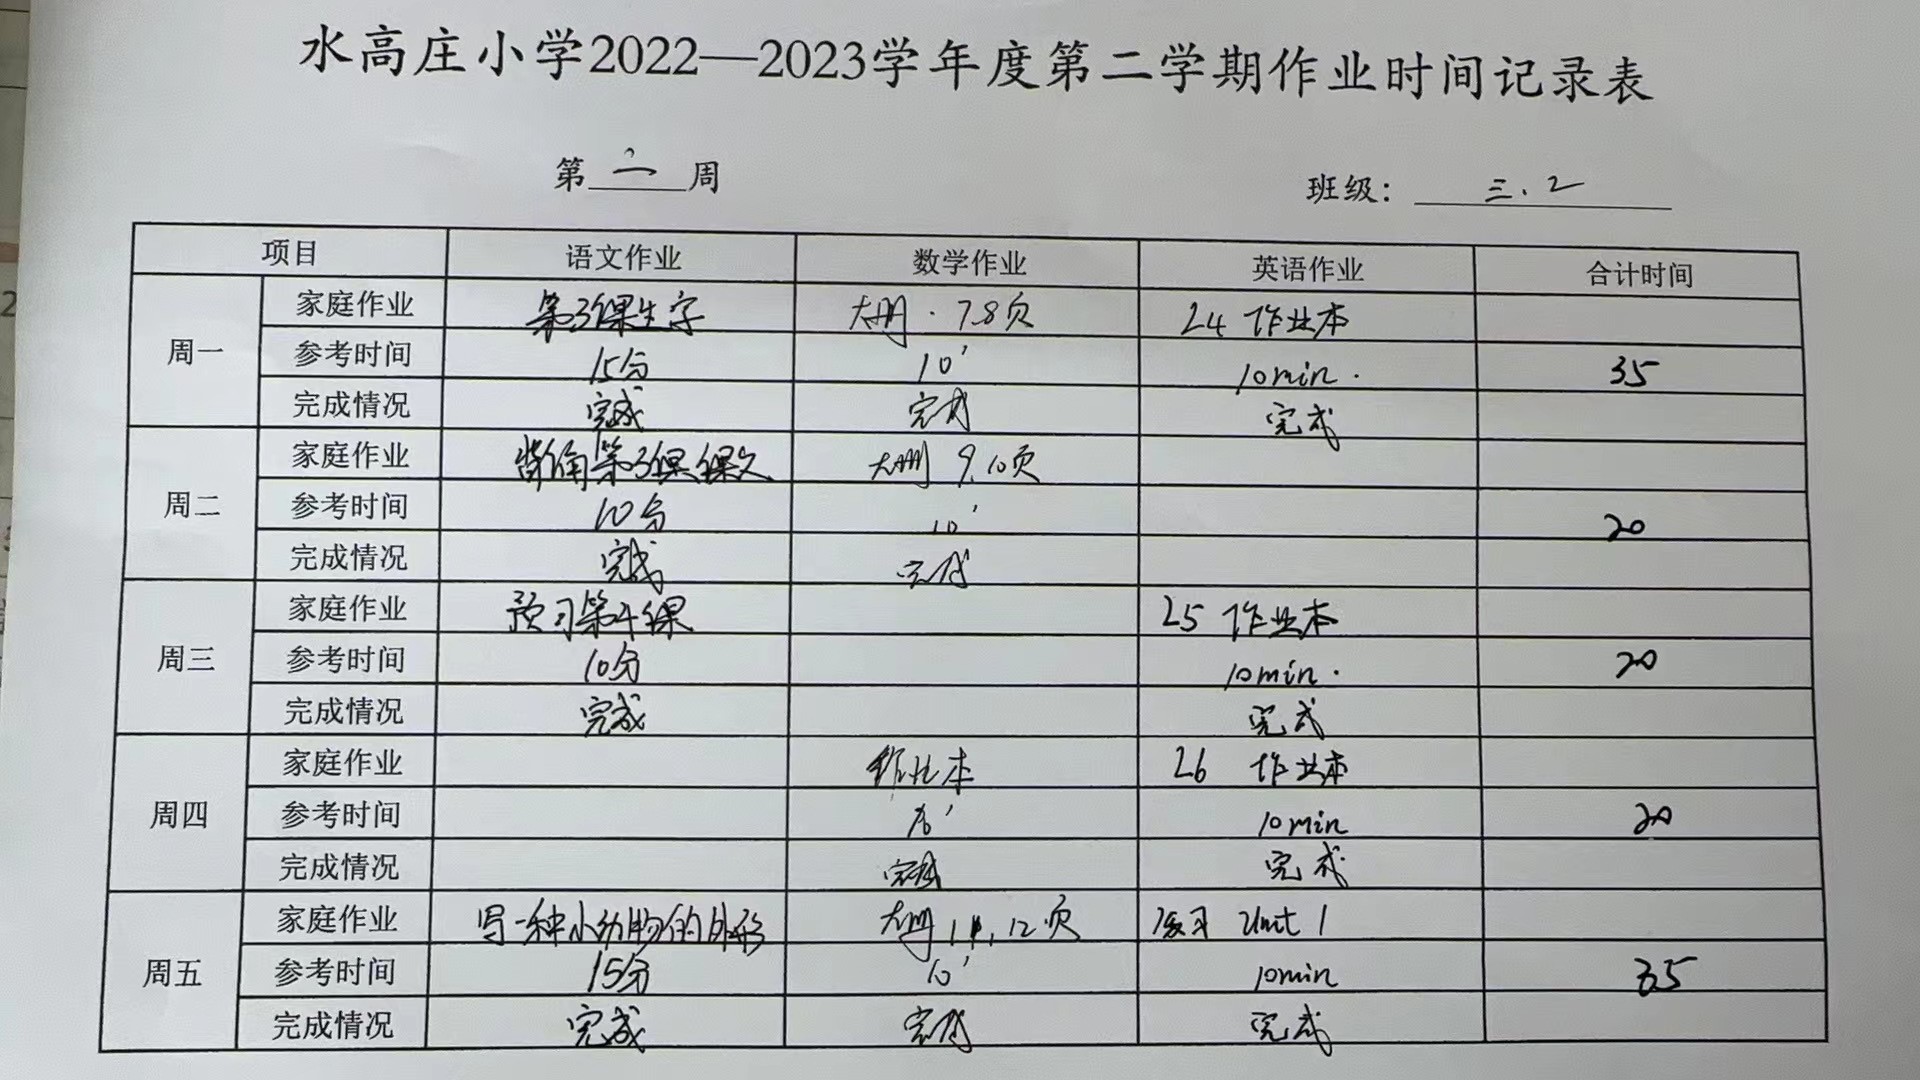 水高庄小学2022—2023学年度第二学期作业时间记录表
第 二 周 班级： 三.2
项目 语文作业 数学作业 英语作业 合计时间
周一
家庭作业 第3课生字 大册.7.8页 24 作业本
参考时间 15分 10' 10min. 35
完成情况 完成 完成 完成
周二
家庭作业 背诵第3课课文 大册 9.10页
参考时间 10分 10' 20
完成情况 完成 完成
周三
家庭作业 预习第4课 25 作业本
参考时间 10分 10min. 20
完成情况 完成 完成
周四
家庭作业 作业本 26 作业本
参考时间 10' 10min 20
完成情况 完成 完成
周五
家庭作业 写一种小动物的外形 大册 11.12页 复习 Unit 1
参考时间 15分 10' 10min 35
完成情况 完成 完成 完成